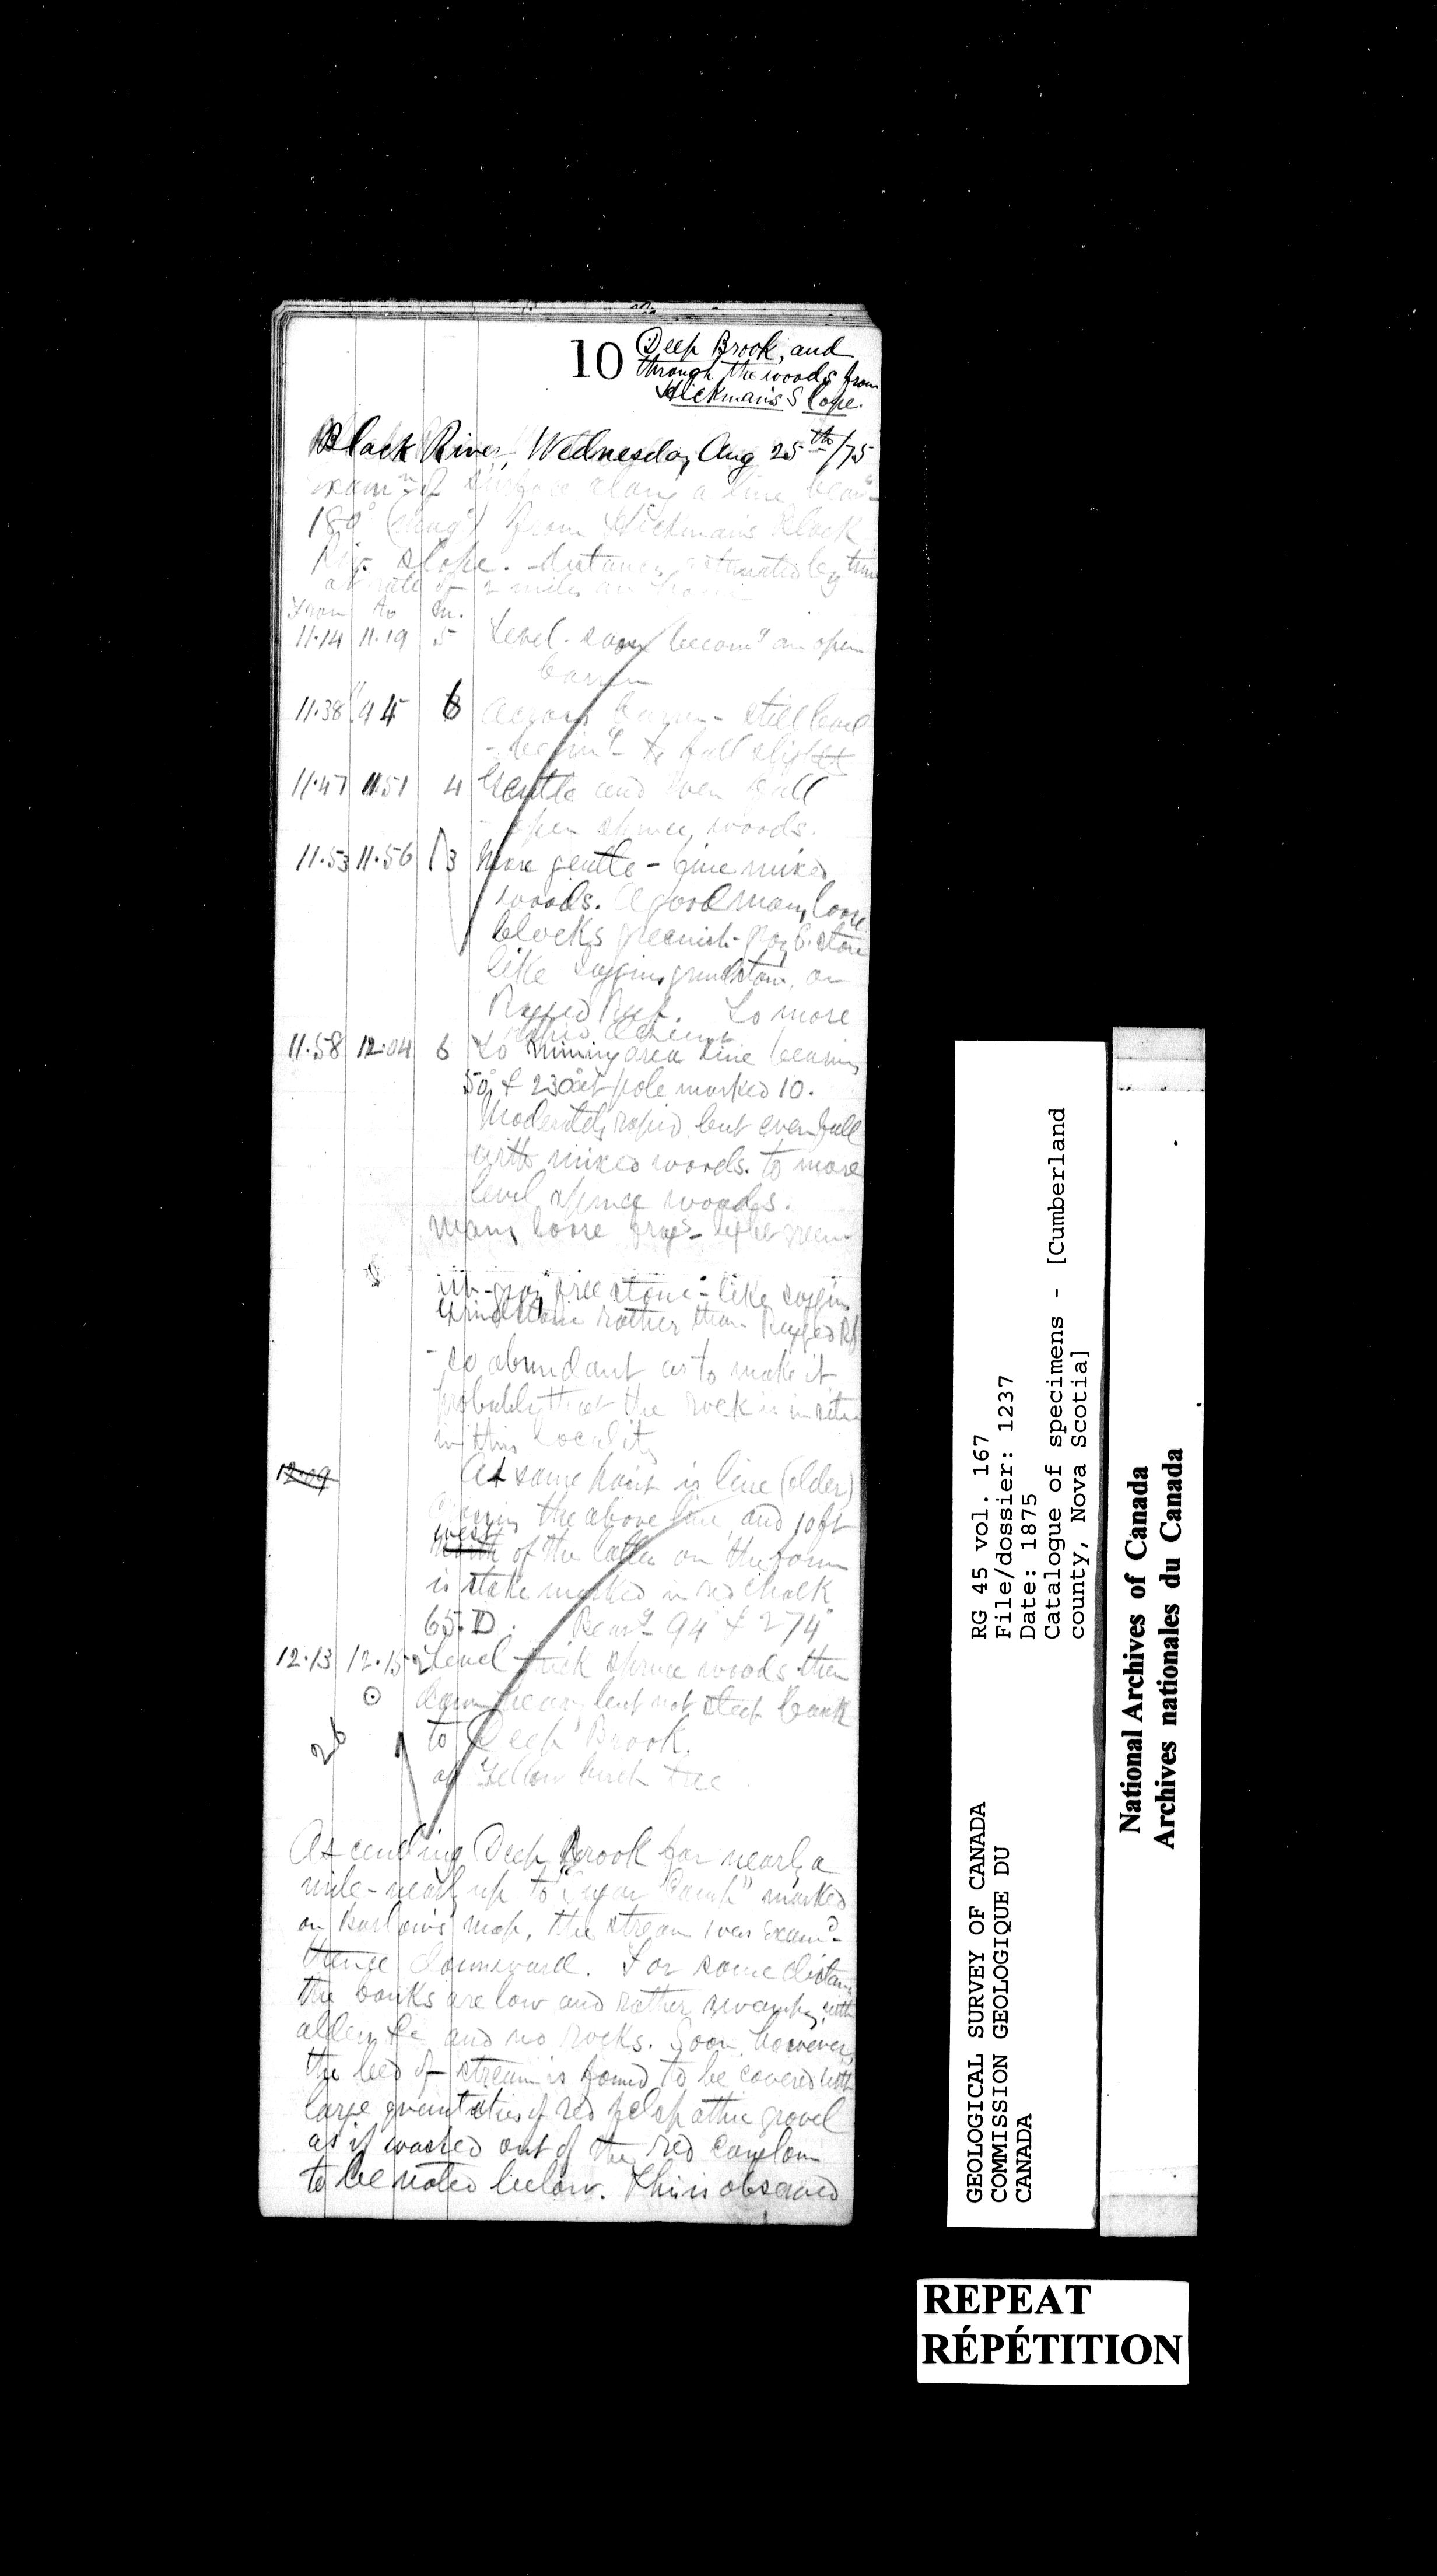 10 Deep Brook, and
through the woods from
Hickman's Slope.
Black River, Wednesday Aug 25th/75
Examn of surface along a line bearg
180° (mag) from Hickman's Black
Riv. slope. - distance estimated by time
at rate of 2 miles an hour
From to m.
11.14 11.19 5 Level. soon becomg an open
barren
11.38 45 6 across barren - still level
- beging to fall slightly
11.47 11.51 4 Gentle and even fall
- open spruce woods.
11.53 11.56 3 More gentle - fine mixed
woods. A good many loose
blocks greenish-gray stone
like Joggins grindstone, or
Ragged Reef. To more
rapid descent
11.58 12.04 6 To mining area line bearing
50° & 230° at pole marked 10.
Moderately rapid but even fall
with mixed woods. to more
level spruce woods.
many loose frags - light green
ish-gray freestone - like Joggins
Grindstone rather than Ragged Rf
- so abundant as to make it
probably that the rock is in situ
in this locality
12.09 At same point is line (older)
crossing the above line, and 10 ft
west
north of the latter on the form
is stake marked in red chalk
65.D. Bearg 94° & 274°
12.13 12.15 2 Level thick spruce woods then
down heavy but not steep bank
26 to Deep Brook.
at Yellow birch tree.
Ascending Deep Brook for nearly a
mile - nearly up to "Sugar Camp" marked
on Barlow's map, the stream was examd
thence downward. For some distance
the banks are low and rather swampy, with
alders &c and no rocks. Soon, however,
the bed of stream is found to be covered with
large quantities of red felspathic gravel
as if washed out of the red conglom
to be noted below. This is observed
GEOLOGICAL SURVEY OF CANADA
COMMISSION GEOLOGIQUE DU
CANADA
RG 45 vol. 167
File/dossier: 1237
Date: 1875
Catalogue of specimens - [Cumberland
county, Nova Scotia]
National Archives of Canada
Archives nationales du Canada
REPEAT
RÉPÉTITION